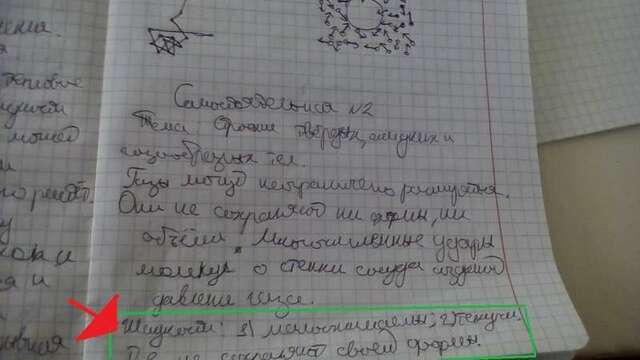 Самостоятельная №2
Тема Строение твёрдых, жидких и
газообразных тел.
Газы могут неограничено расширяться.
Они не сохраняют ни формы, ни
объёма. Многочисленные удары
молекул о стенки сосуда создают
давление газа.
Жидкости: 1) малосжимаемы; 2) текучи.
не сохраняют своей формы.
тепловые
может
и